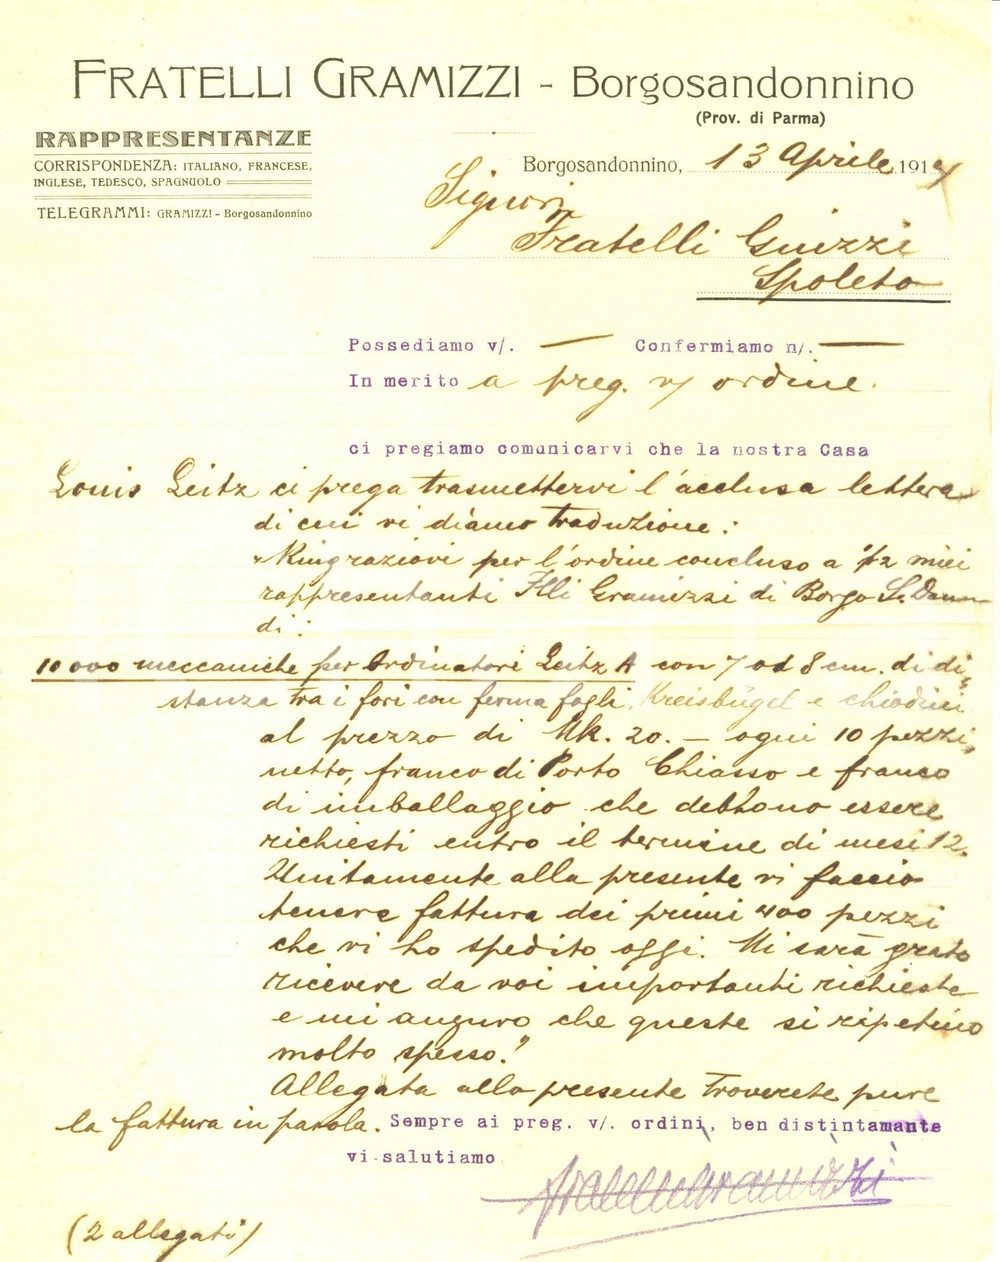 FRATELLI GRAMIZZI - Borgosandonnino
(Prov. di Parma)
RAPPRESENTANZE
CORRISPONDENZA: ITALIANO, FRANCESE,
INGLESE, TEDESCO, SPAGNUOLO
TELEGRAMMI: GRAMIZZI - Borgosandonnino
Borgosandonnino, 13 Aprile 191
Signori
Fratelli Guizzi
Spoleto
Possediamo v/. — Confermiamo n/. —
In merito a preg. v/ ordine.
ci pregiamo comunicarvi che la nostra Casa
Louis Leitz ci prega trasmettervi l'acclusa lettera
di cui vi diamo traduzione:
"Ringraziovi per l'ordine concluso a 1/2 miei
rappresentanti Flli Gramizzi di Borgo S. Donn
di:
10 000 meccaniche per Ordinatori Leitz A con 7 od 8 cm. di di
stanza tra i fori con ferma fogli, Kreisbügel e chiodini
al prezzo di Mk. 20. — ogni 10 pezzi,
netto, franco di Porto Chiasso e franco
di imballaggio che debbono essere
richiesti entro il termine di mesi 12.
Unitamente alla presente vi faccio
tenere fattura dei primi 400 pezzi
che vi ho spedito oggi. Mi sarà grato
ricevere da voi importanti richieste
e mi auguro che queste si ripetino
molto spesso."
Allegata alla presente troverete pure
la fattura in parola. Sempre ai preg. v/. ordini, ben distintamante
vi salutiamo
Fratelli Gramizzi
(2 allegati)